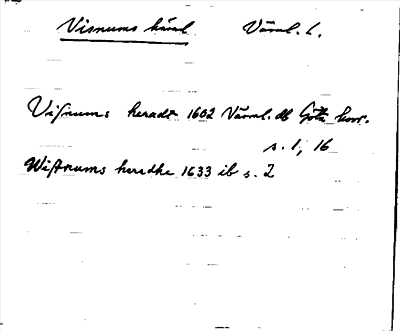 Visnums härad Värml. l.
Visnums heradt 1602 Värml. db Göta hovr.
s. 1, 16
Wistnums heredhe 1633 ib s. 2